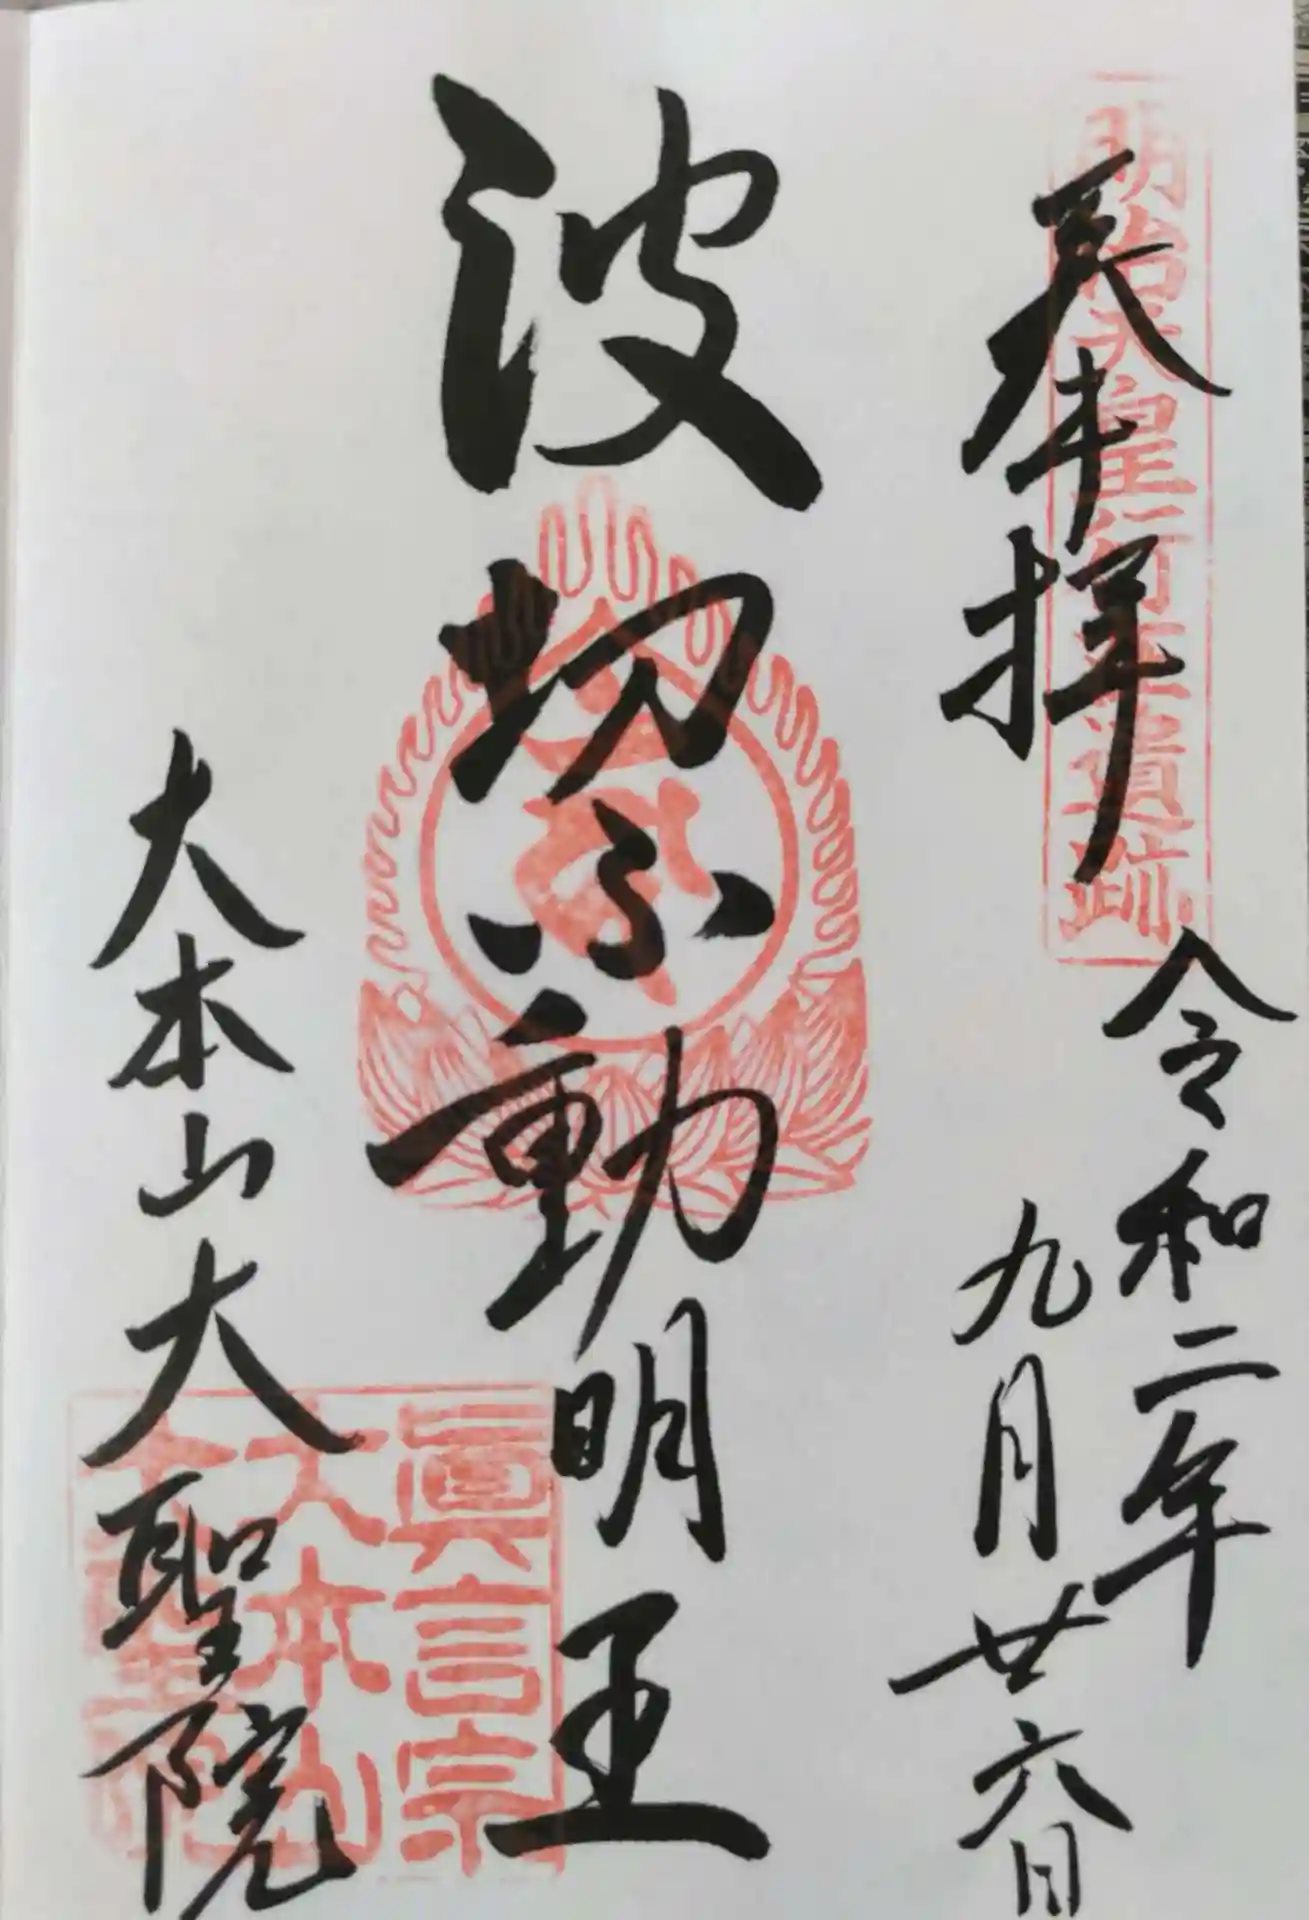 明治天皇行在遺跡
奉拝
令和二年
九月廿六日
波切不動明王
大本山大聖院
眞言宗
大本山
大聖院